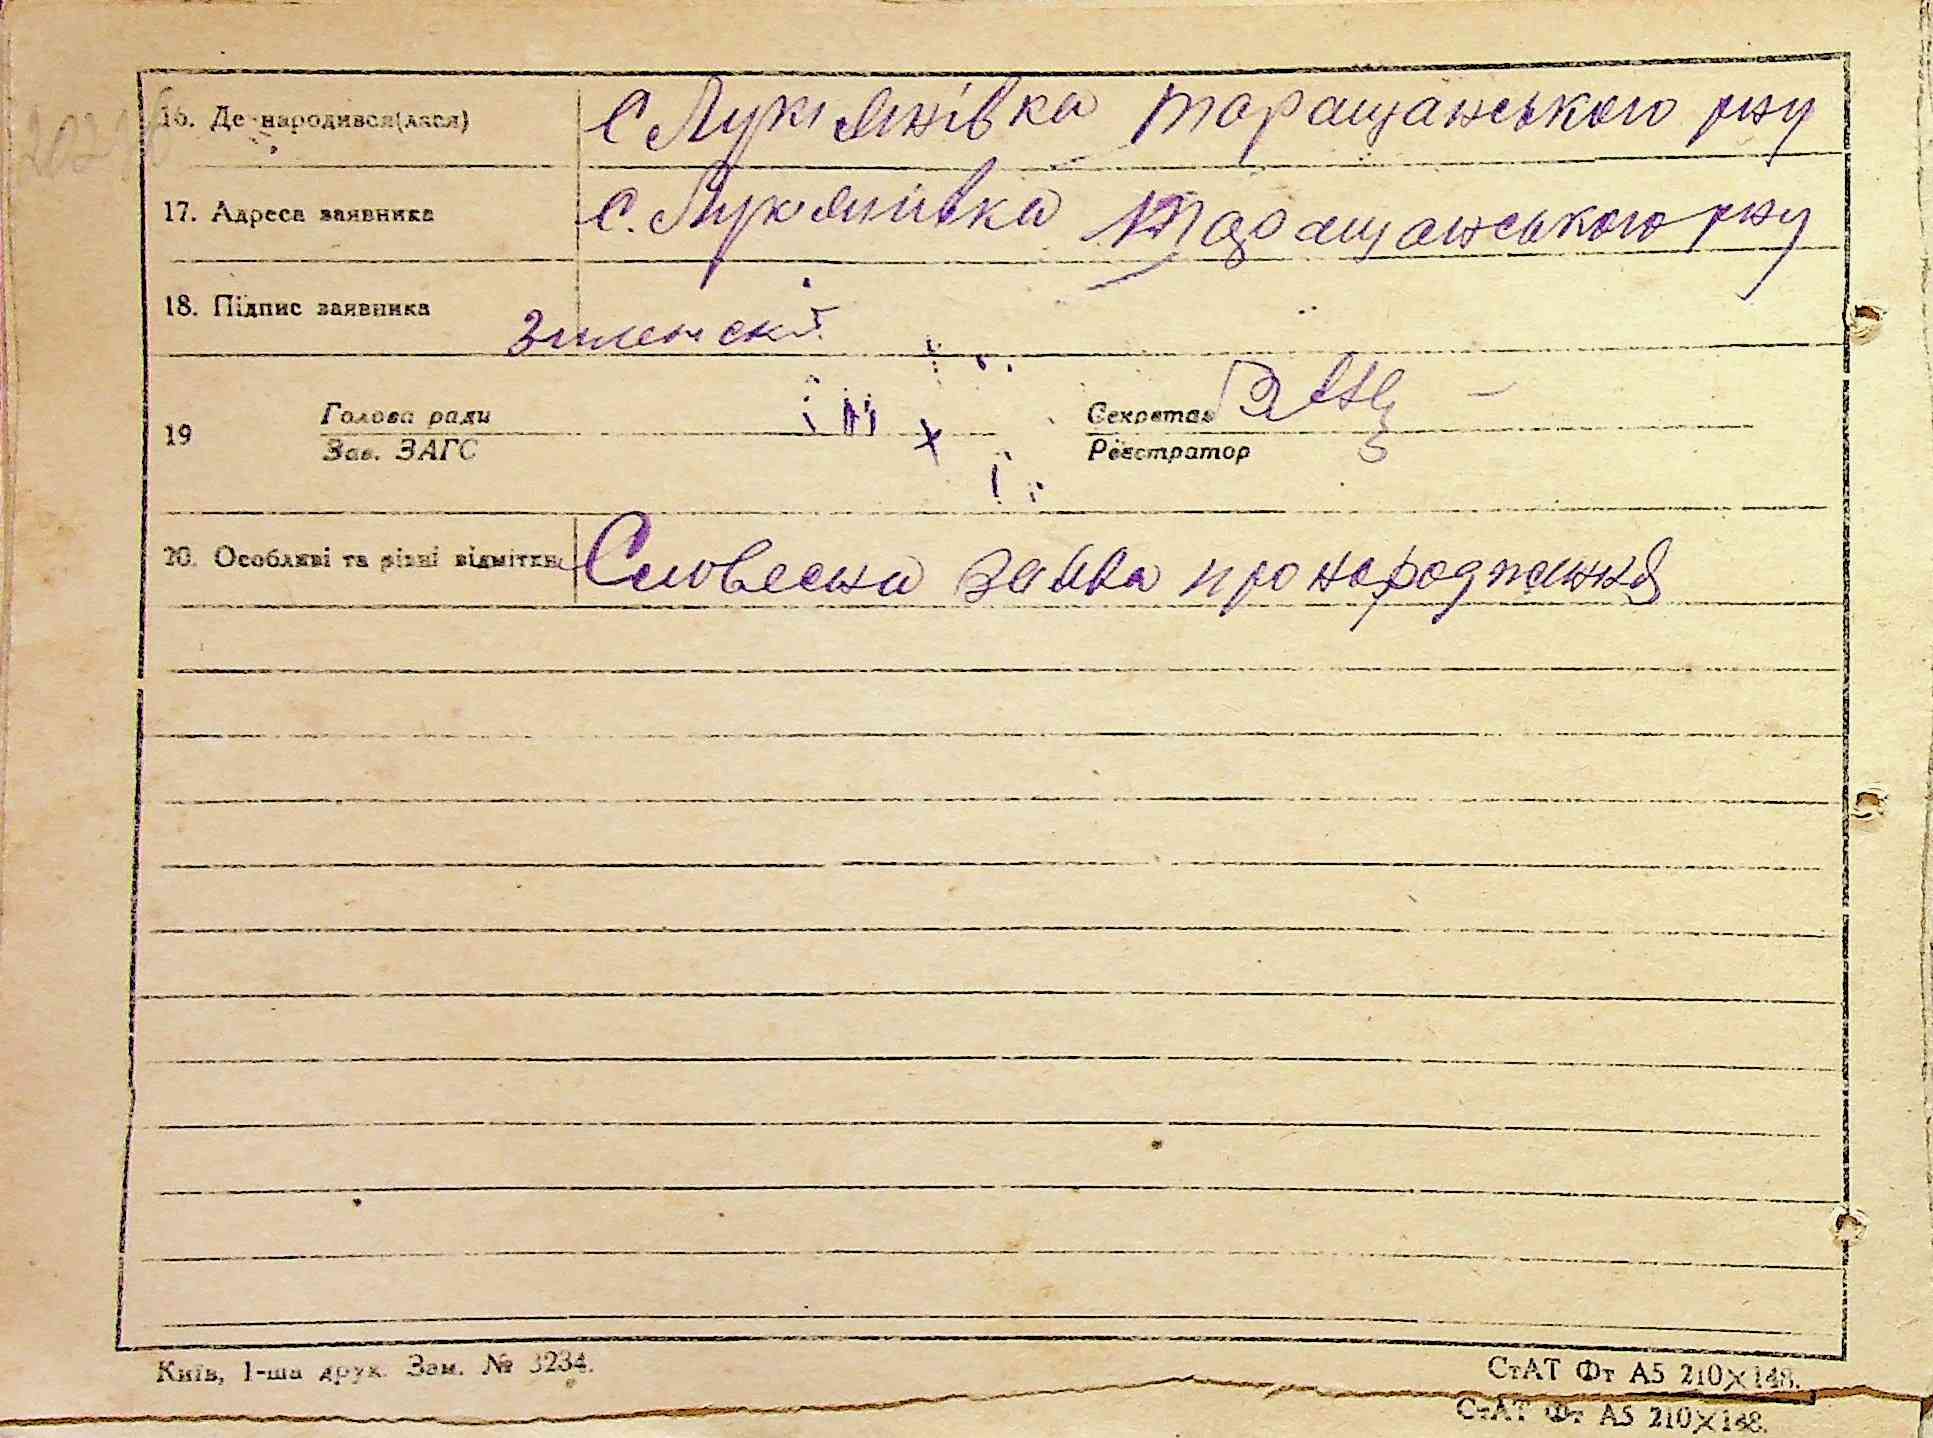 16. Де народився(лася) с Лукянівка Таращанського р-ну
17. Адреса заявника с. Лукянівка Таращанського р-ну
18. Підпис заявника
19 Голова ради Секретар
Зав. ЗАГС Реєстратор
20. Особливі та різні відмітки Словесна заява про народження
Київ, 1-ша друк. Зам. № 3234.
СтАТ Фт А5 210×148.
СтАТ Фт А5 210×148.